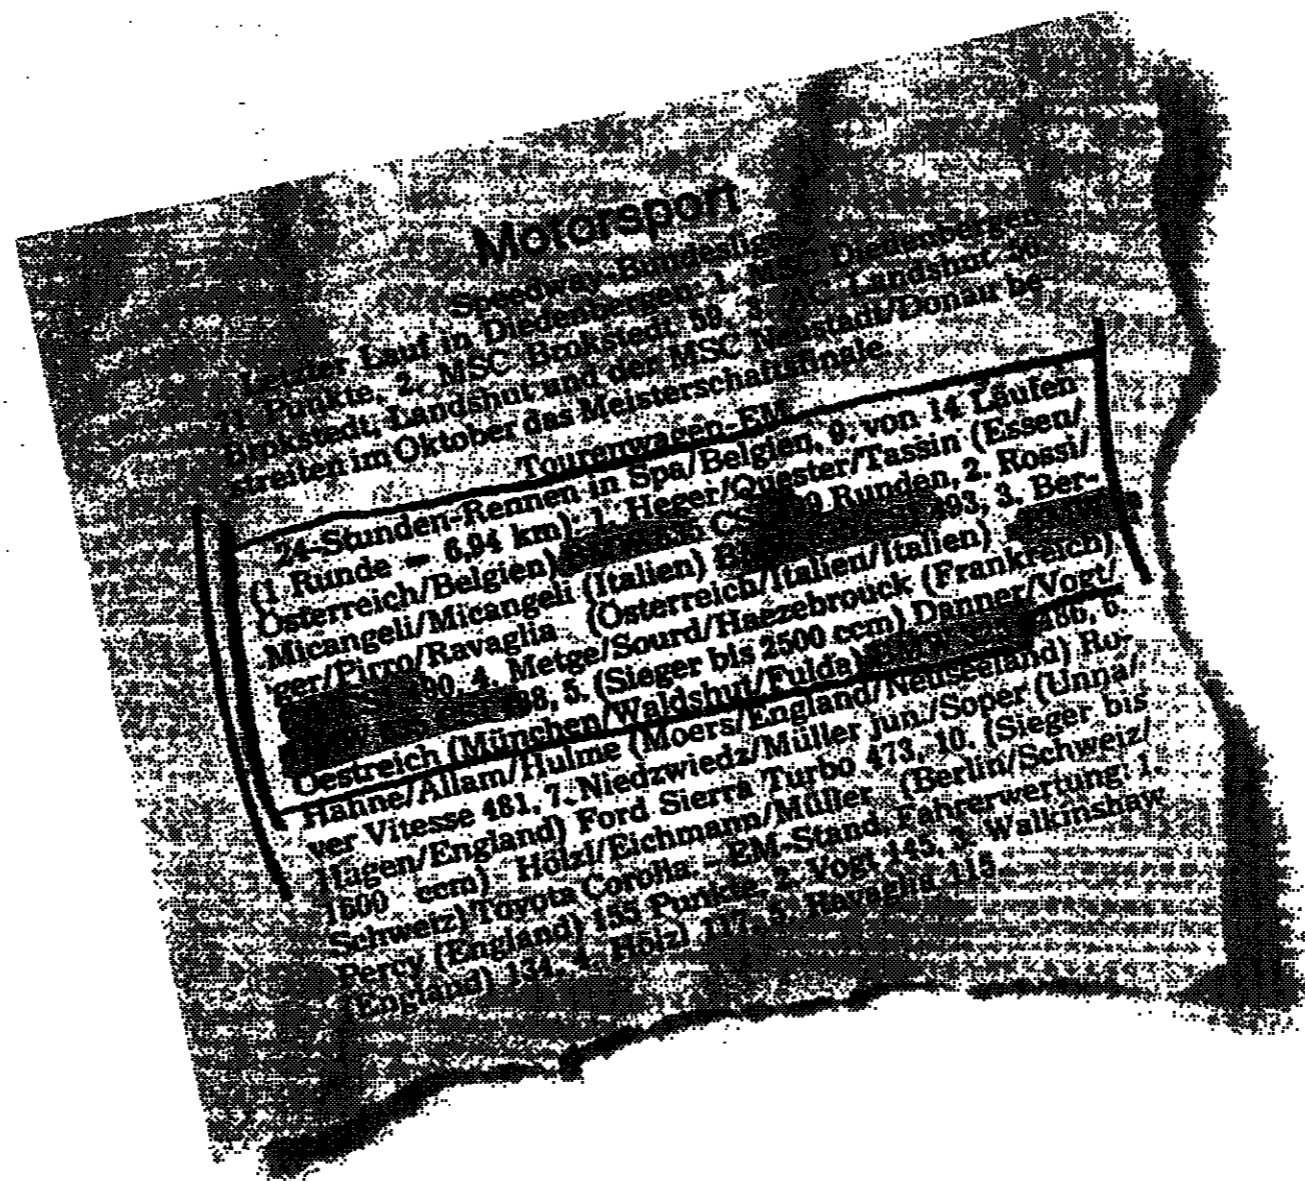 Motorsport
Speedway-Bundesliga
Letzter Lauf in Diedenbergen: 1. MSC Diedenbergen
71 Punkte, 2. MSC Brokstedt 59, 3. AC Landshut 50.
Brokstedt, Landshut und der MSC Neustadt/Donau be-
streiten im Oktober das Meisterschaftsfinale.
Tourenwagen-EM
24-Stunden-Rennen in Spa/Belgien, 9. von 14 Läufen
(1 Runde = 6,94 km): 1. Heger/Quester/Tassin (Essen/
Österreich/Belgien) CSi Runden, 2. Rossi/
Micangeli/Micangeli (Italien) 493, 3. Ber-
ger/Pirro/Ravaglia (Österreich/Italien/Italien)
4. Metge/Sourd/Haezebrouck (Frankreich)
5. (Sieger bis 2500 ccm) Danner/Vogt/
Oestreich (München/Waldshut/Fulda) 486, 6.
Hahne/Allam/Hulme (Moers/England/Neuseeland) Ro-
ver Vitesse 481, 7. Niedzwiedz/Müller jun./Soper (Unna/
Hagen/England) Ford Sierra Turbo 473, 10. (Sieger bis
1600 ccm) Hölzl/Eichmann/Müller (Berlin/Schweiz/
Schweiz) Toyota Corolla. – EM-Stand, Fahrerwertung: 1.
Percy (England) 155 Punkte, 2. Vogt 145, 3. Walkinshaw
(England) 134, 4. Hölzl 117, 5. Ravaglia 115.